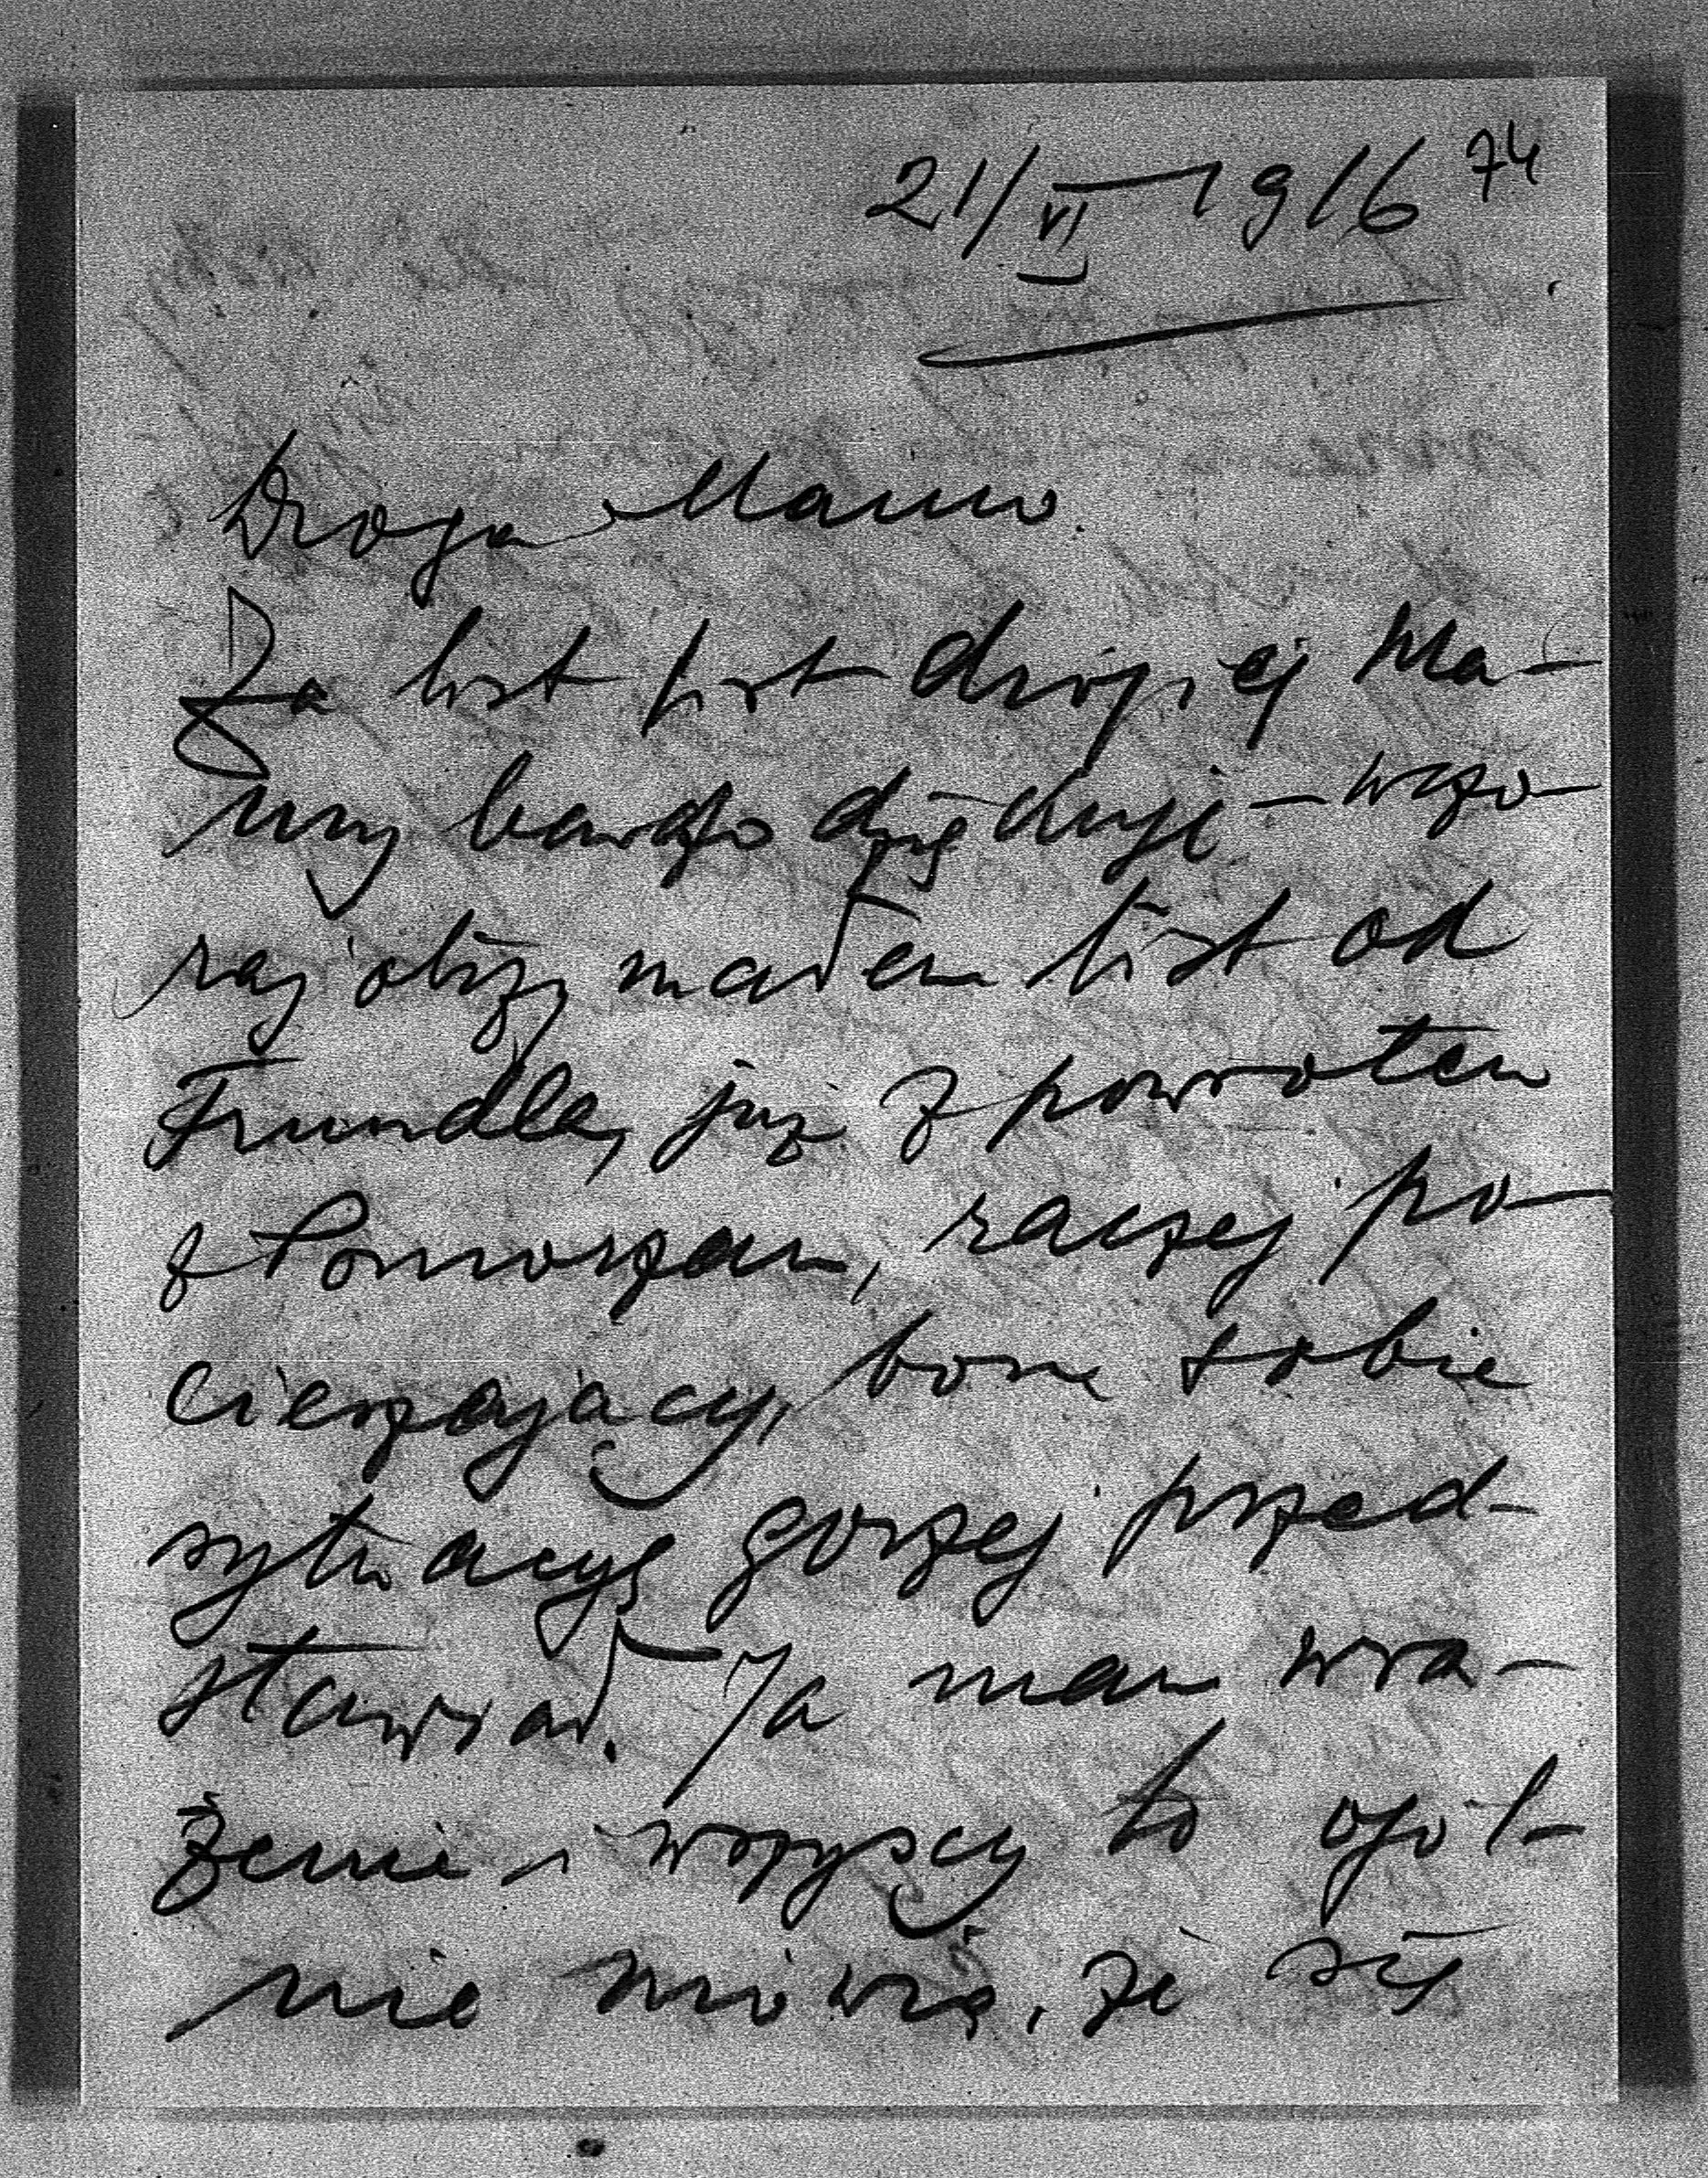 21/VI 1916 74
Droga Mamo.
Za list list drogiej Ma-
my bardzo dziękuję – wczo-
raj otrzymałem list od
już z powrotem
z Pomorzan, raczej po-
cieszający, bom sobie
sytuacyę gorzej przed-
stawiał. Ja mam wra-
żenie i wszyscy to ogól-
nie mówią, że się